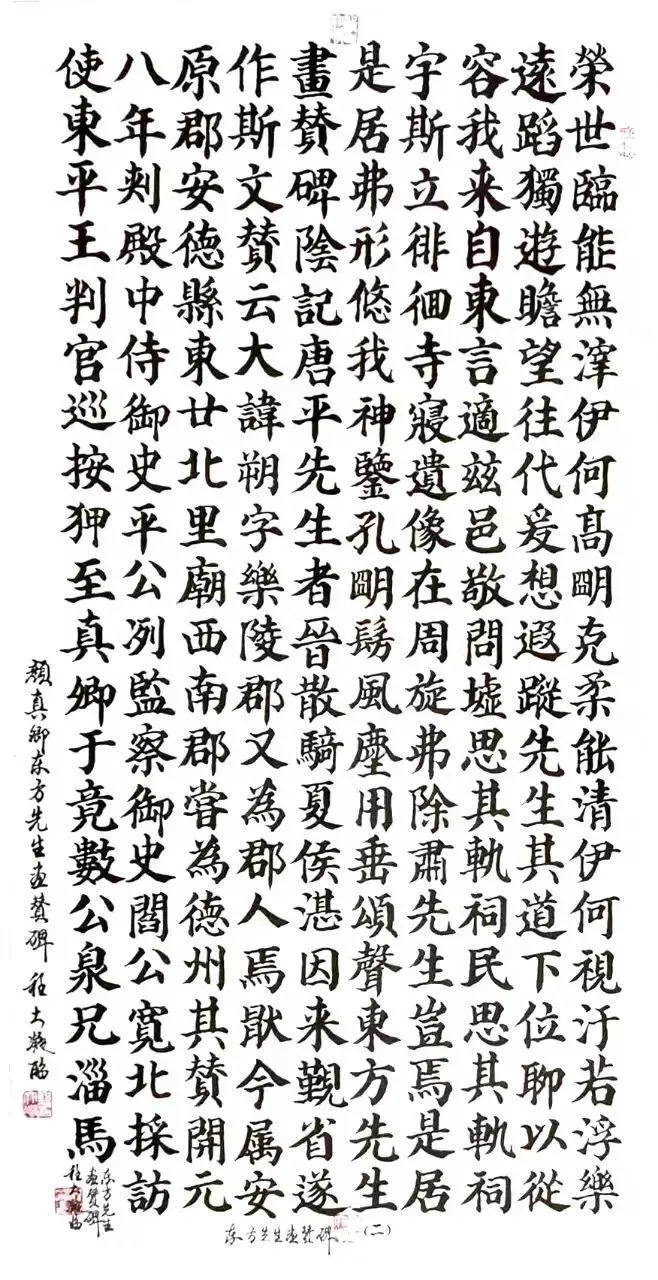 榮世臨能無滓伊何高明克柔能清伊何視汙若浮樂
遠蹈獨遊瞻望往代爰想遐蹤先生其道下位聊以從
容我来自東言適兹邑敬問墟思其軌祠民思其軌祠
宇斯立徘徊寺寢遺像在周旋弗除肅先生豈焉是居
是居弗形悠我神鑒孔明髣風塵用垂頌聲東方先生
畫賛碑陰記唐平先生者晉散騎夏侯湛因来覲省遂
作斯文賛云大諱朔字樂陵郡又為郡人焉猒今属安
原郡安德縣東廿北里廟西南郡嘗為德州其賛開元
八年刾殿中侍御史平公冽監察御史閻公寬北採訪
使東平王判官巡按狎至真卿于竟數公泉兄淄馬
顏真卿东方先生畫賛碑 程大凝臨
东方先生
畫賛碑
程大凝臨
东方先生畫賛碑(二)